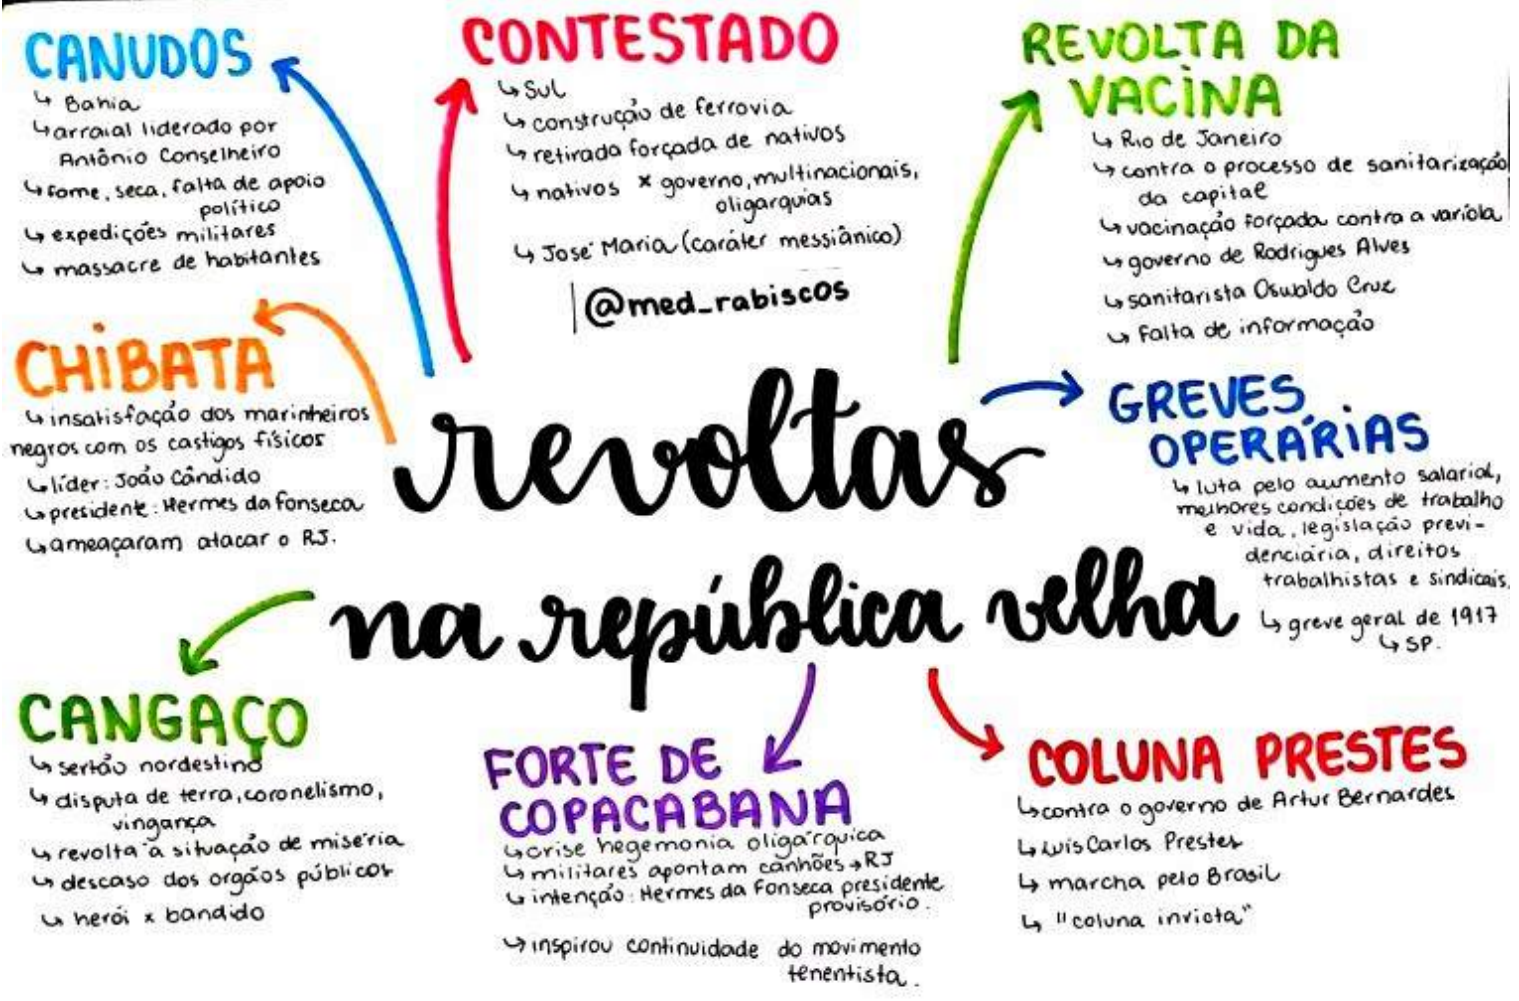 CANUDOS
↳ Bahia
↳ arraial liderado por
Antônio Conselheiro
↳ fome, seca, falta de apoio
político
↳ expedições militares
↳ massacre de habitantes
CONTESTADO
↳ Sul
↳ construção de ferrovia
↳ retirada forçada de nativos
↳ nativos x governo, multinacionais,
oligarquias
↳ José Maria (caráter messiânico)
@med_rabiscos
REVOLTA DA
VACINA
↳ Rio de Janeiro
↳ contra o processo de sanitarização
da capital
↳ vacinação forçada contra a varíola
↳ governo de Rodrigues Alves
↳ sanitarista Oswaldo Cruz
↳ falta de informação
CHIBATA
↳ insatisfação dos marinheiros
negros com os castigos físicos
↳ líder: João Cândido
↳ presidente: Hermes da Fonseca
↳ ameaçaram atacar o RJ.
revoltas
na república velha
GREVES
OPERÁRIAS
↳ luta pelo aumento salarial,
melhores condições de trabalho
e vida, legislação previ-
denciária, direitos
trabalhistas e sindicais.
↳ greve geral de 1917
↳ SP.
CANGAÇO
↳ sertão nordestino
↳ disputa de terra, coronelismo,
vingança
↳ revolta à situação de miséria
↳ descaso dos orgãos públicos
↳ herói x bandido
FORTE DE
COPACABANA
↳ crise hegemonia oligárquica
↳ militares apontam canhões → RJ
↳ intenção: Hermes da Fonseca presidente
provisório.
↳ inspirou continuidade do movimento
tenentista.
COLUNA PRESTES
↳ contra o governo de Artur Bernardes
↳ Luis Carlos Prestes
↳ marcha pelo Brasil
↳ "coluna invicta"